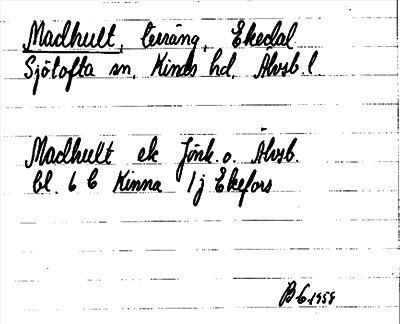 Madhult, terräng, Ekedal
Sjötofta sn, Kinds hd, Älvsb. l.
Madhult ek Jönk. o. Älvsb.
bl. 6 C Kinna 1 j Ekefors
B 6 1958